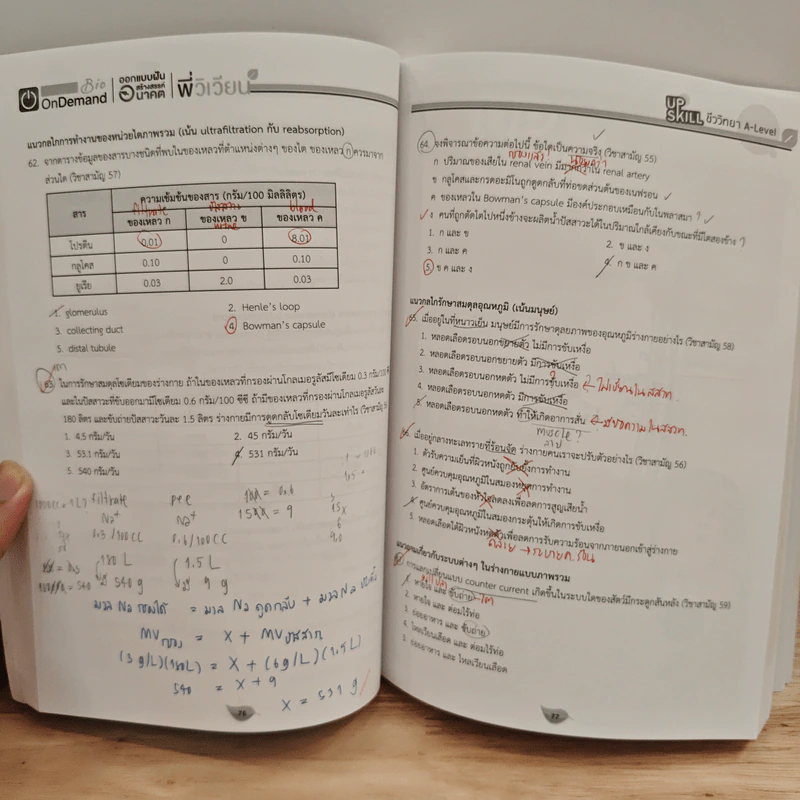 Bio
OnDemand
ออกแบบฝัน
สร้างสรรค์
อนาคต
พี่วิเวียน
แนวกลไกการทำงานของหน่วยไตภาพรวม (เน้น ultrafiltration กับ reabsorption)
62. จากตารางข้อมูลของสารบางชนิดที่พบในของเหลวที่ตำแหน่งต่างๆ ของไต ของเหลว ก ควรมาจาก
ส่วนใด (วิชาสามัญ 57)
สาร
ความเข้มข้นของสาร (กรัม/100 มิลลิลิตร)
filtrate
ปัสสาวะ
blood
ของเหลว ก
ของเหลว ข
ของเหลว ค
urine
โปรตีน 0.01 0 8.01
กลูโคส 0.10 0 0.10
ยูเรีย 0.03 2.0 0.03
1. glomerulus
2. Henle's loop
3. collecting duct
4. Bowman's capsule
5. distal tubule
63. ในการรักษาสมดุลโซเดียมของร่างกาย ถ้าในของเหลวที่กรองผ่านโกลเมอรูลัสมีโซเดียม 0.3 กรัม/100 ซีซี
และในปัสสาวะที่ขับออกมามีโซเดียม 0.6 กรัม/100 ซีซี ถ้ามีของเหลวที่กรองผ่านโกลเมอรูลัสวันละ
180 ลิตร และขับถ่ายปัสสาวะวันละ 1.5 ลิตร ร่างกายมีการดูดกลับโซเดียมวันละเท่าไร (วิชาสามัญ
1. 4.5 กรัม/วัน
2. 45 กรัม/วัน
3. 53.1 กรัม/วัน
4. 531 กรัม/วัน
5. 540 กรัม/วัน
filtrate
pee
Na+
Na+
0.3/100 CC
0.6/100 CC
180 L
1.5 L
540 g
9 g
มวล Na กรองได้ = มวล Na ดูดกลับ + มวล Na
MV กรอง = X + MV ปัสสาวะ
(3 g/L)(180L) = X + (6g/L)(1.5L)
540 = X + 9
X = 531 g
76
UP
SKILL
ชีววิทยา A-Level
64. จงพิจารณาข้อความต่อไปนี้ ข้อใดเป็นความจริง (วิชาสามัญ 55)
กรองแล้ว
น้อยกว่า
ก ปริมาณของเสียใน renal vein มีมากกว่าใน renal artery
ข กลูโคสและกรดอะมิโนถูกดูดกลับที่ท่อขดส่วนต้นของเนฟรอน
ค ของเหลวใน Bowman's capsule มีองค์ประกอบเหมือนกับในพลาสมา ?
ง คนที่ถูกตัดไตไปหนึ่งข้างจะผลิตน้ำปัสสาวะได้ในปริมาณใกล้เคียงกับขณะที่มีไตสองข้าง ?
1. ก และ ข
2. ข และ ง
3. ก และ ค
4. ก ข และ ค
5. ข ค และ ง
แนวกลไกรักษาสมดุลอุณหภูมิ (เน้นมนุษย์)
65. เมื่ออยู่ในที่หนาวเย็น มนุษย์มีการรักษาดุลยภาพของอุณหภูมิร่างกายอย่างไร (วิชาสามัญ 58)
1. หลอดเลือดรอบนอกขยายตัว ไม่มีการขับเหงื่อ
2. หลอดเลือดรอบนอกขยายตัว มีการขับเหงื่อ
3. หลอดเลือดรอบนอกหดตัว ไม่มีการขับเหงื่อ
4. หลอดเลือดรอบนอกหดตัว มีการขับเหงื่อ
5. หลอดเลือดรอบนอกหดตัว ทำให้เกิดอาการสั่น
muscle ?
66. เมื่ออยู่กลางทะเลทรายที่ร้อนจัด ร่างกายคนเราจะปรับตัวอย่างไร (วิชาสามัญ 56)
1. ตัวรับความเย็นที่ผิวหนังถูกยับยั้งการทำงาน
2. ศูนย์ควบคุมอุณหภูมิในสมองหยุดการทำงาน
3. อัตราการเต้นของหัวใจลดลงเพื่อลดการสูญเสียน้ำ
4. ศูนย์ควบคุมอุณหภูมิในสมองกระตุ้นให้เกิดการขับเหงื่อ
5. หลอดเลือดใต้ผิวหนังหดตัวเพื่อลดการรับความร้อนจากภายนอกเข้าสู่ร่างกาย
คลาย → ระบายความร้อน
แนวถามเกี่ยวกับระบบต่างๆ ในร่างกายแบบภาพรวม
การแลกเปลี่ยนแบบ counter current เกิดขึ้นในระบบใดของสัตว์มีกระดูกสันหลัง (วิชาสามัญ 59)
1. หายใจ และ ขับถ่าย → ไต
2. หายใจ และ ต่อมไร้ท่อ
3. ย่อยอาหาร และ ขับถ่าย
4. ไหลเวียนเลือด และ ต่อมไร้ท่อ
5. ย่อยอาหาร และ ไหลเวียนเลือด
77